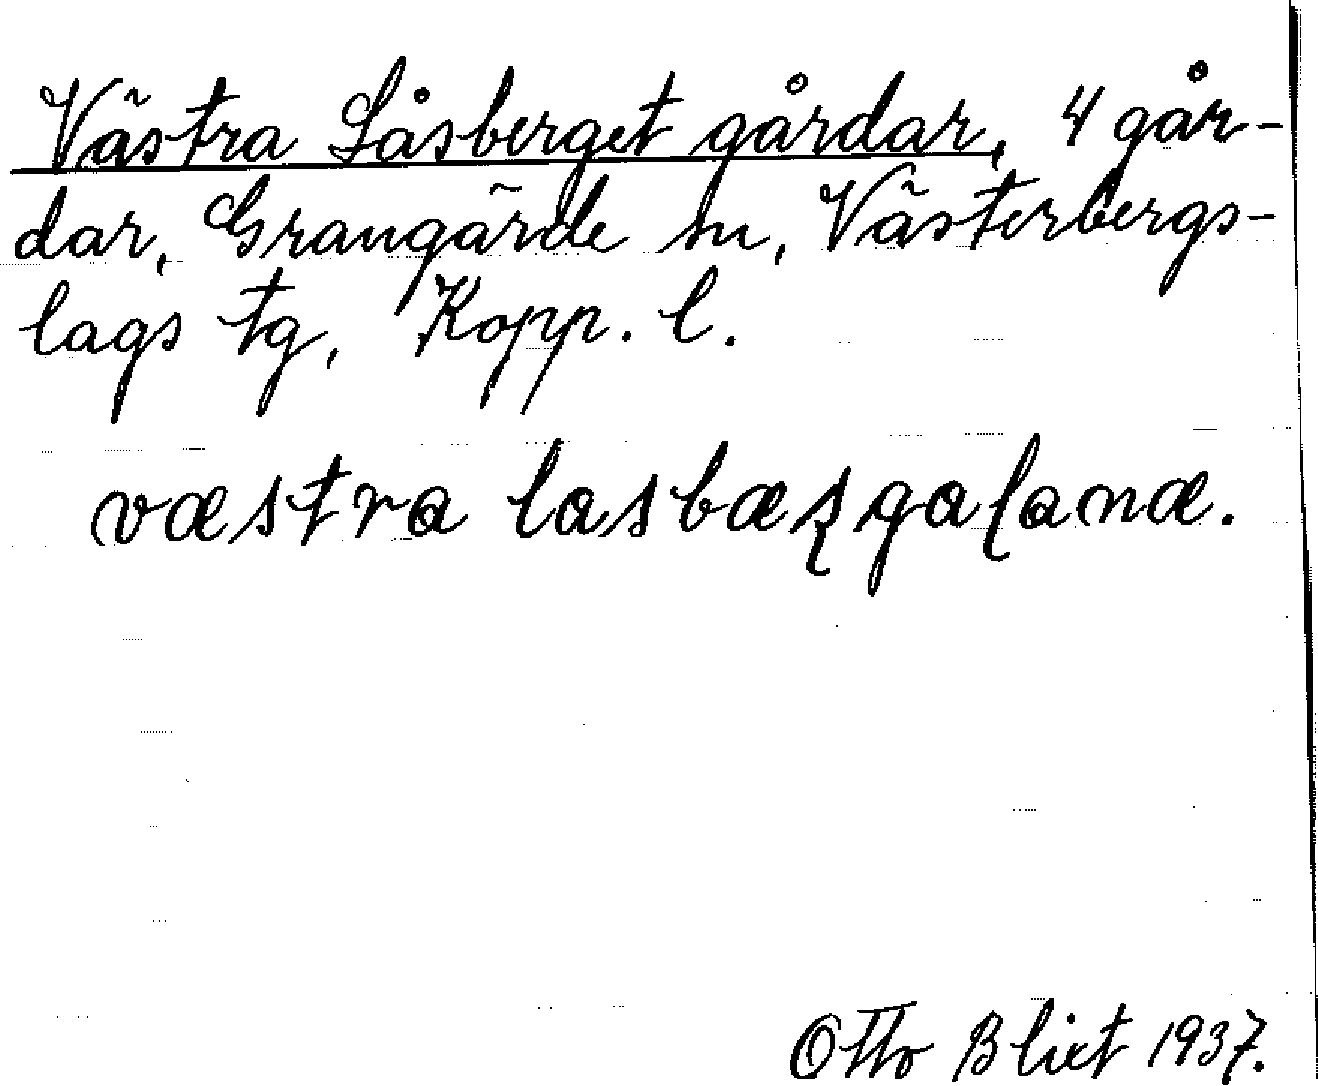 Västra Låsberget gårdar, 4 går-
dar, Grangärde sn, Västerbergs-
lags tg, Kopp. l.
væstra lasbæʂgaɭanæ.
Otto Blixt 1937.